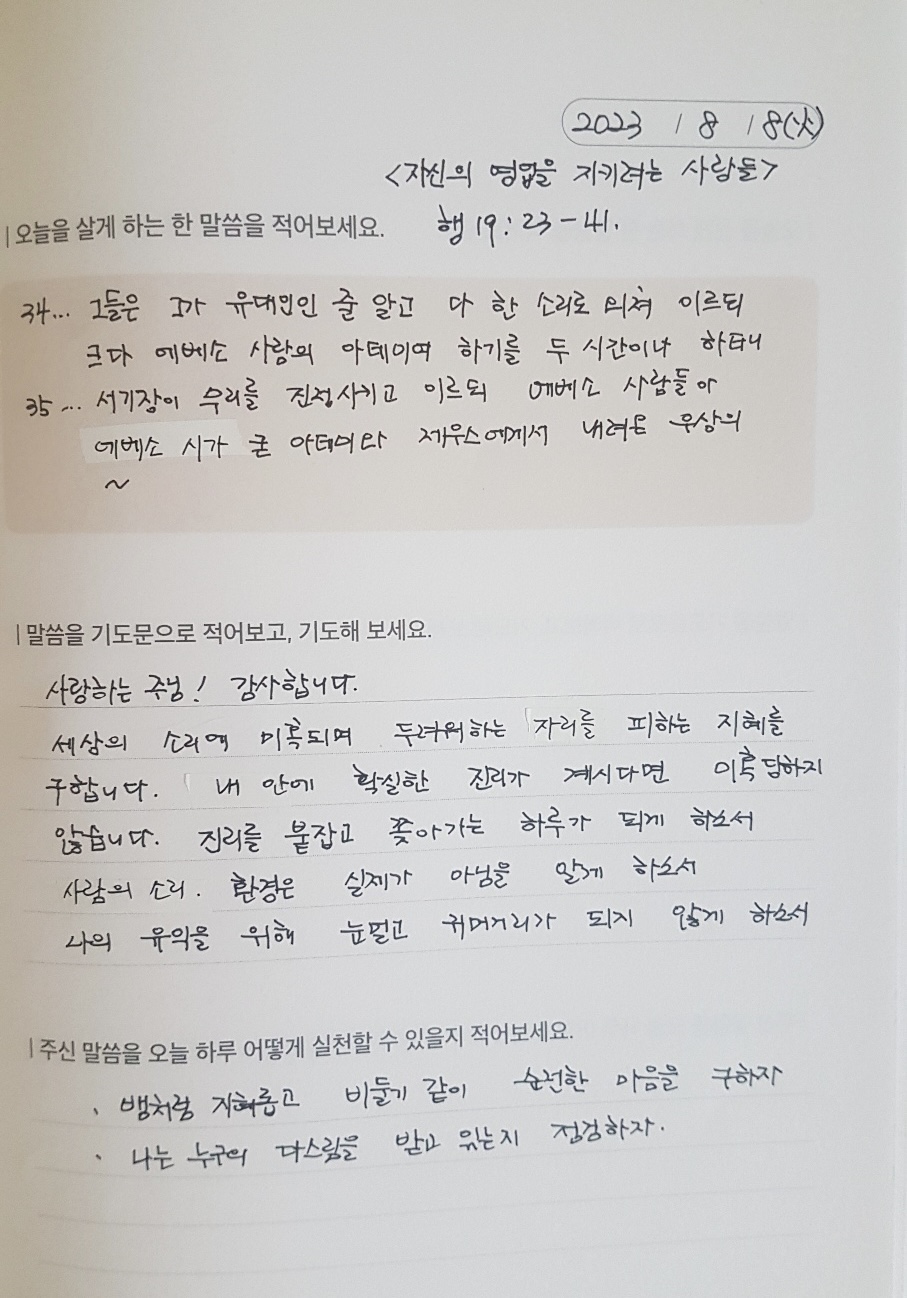 2023 / 8 / 8(火)
<자신의 영업을 지키려는 사람들>
|오늘을 살게 하는 한 말씀을 적어보세요. 행 19:23-41.
34... 그들은 그가 유대인인 줄 알고 다 한 소리로 외쳐 이르되
크다 에베소 사람의 아데미여 하기를 두 시간이나 하더니
35... 서기장이 무리를 진정시키고 이르되 에베소 사람들아
에베소 시가 큰 아데미와 제우스에게서 내려온 우상의
~
|말씀을 기도문으로 적어보고, 기도해 보세요.
사랑하는 주님! 감사합니다.
세상의 소리에 미혹되며 두려워하는 자리를 피하는 지혜를
구합니다. 내 안에 확실한 진리가 계시다면 미혹 당하지
않습니다. 진리를 붙잡고 쫓아가는 하루가 되게 하소서
사람의 소리. 환경은 실제가 아님을 알게 하소서
나의 유익을 위해 눈멀고 귀머거리가 되지 않게 하소서
|주신 말씀을 오늘 하루 어떻게 실천할 수 있을지 적어보세요.
· 뱀처럼 지혜롭고 비둘기 같이 순전한 마음을 구하자
· 나는 누구의 다스림을 받고 있는지 점검하자.